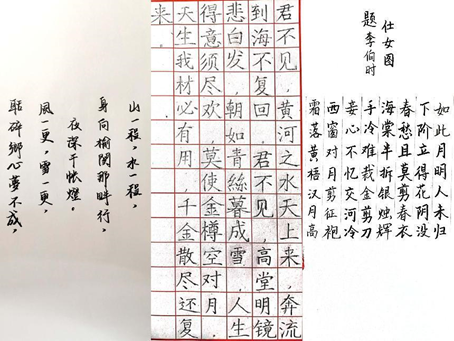 山一程，水一程，
身向榆関那畔行，
夜深千帐燈。
風一更，雪一更，
聒碎鄉心夢不成，
君不见，黄河之水天上来，奔流
到海不复回。君不见，高堂明镜
悲白发，朝如青絲暮成雪。人生
得意须尽欢，莫使金樽空对月。
天生我材必有用，千金散尽还复
来。
题李伯时
仕女图
霜落黄梧汉月高
西窗对月剪征袍
妾心不忆交河冷
手冷难我金剪刀
海棠半拆银烛辉
春愁且莫剪春衣
下阶立得花阴没
如此月明人未归